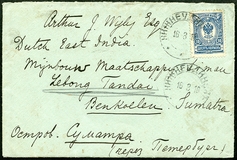 Arthur J Wyly Esq
Dutch East India
Mijnbouw Maatschappij
Lebong Tandai
Benkoelen Sumatra
Остров. Суматра
(через Петербург)